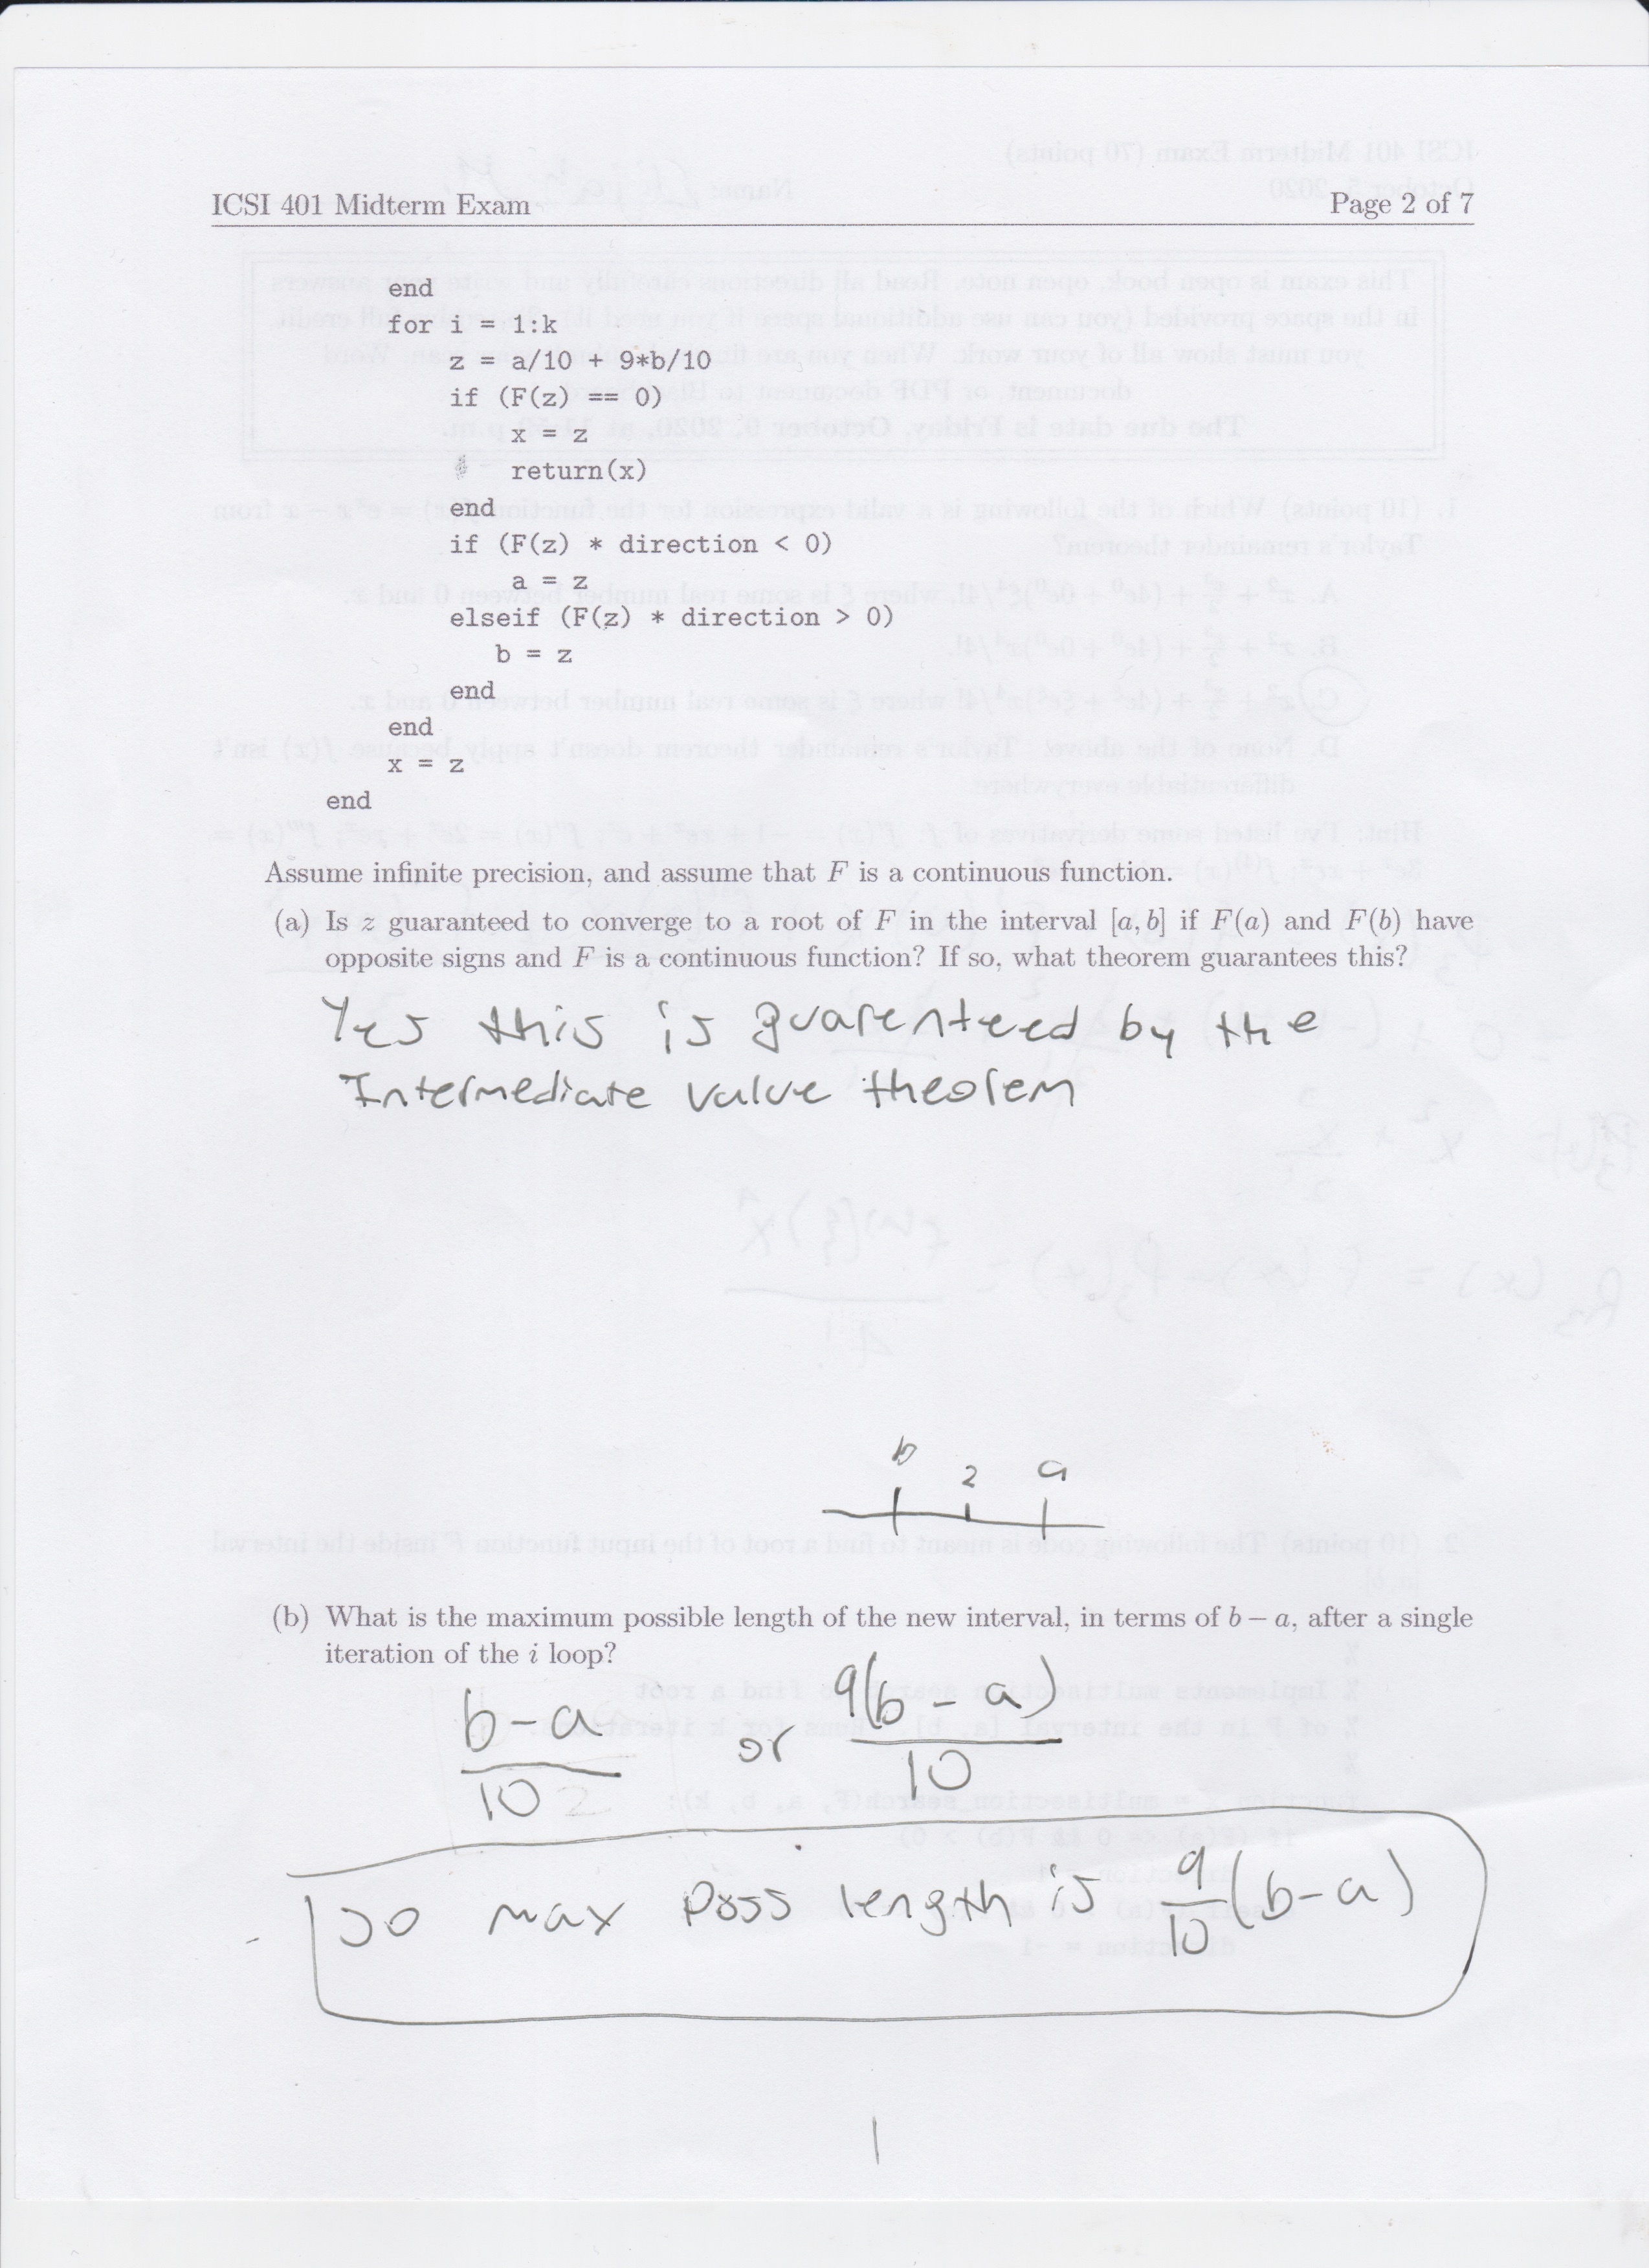 ICSI 401 Midterm Exam Page 2 of 7
end
for i = 1:k
z = a/10 + 9*b/10
if (F(z) == 0)
x = z
return(x)
end
if (F(z) * direction < 0)
a = z
elseif (F(z) * direction > 0)
b = z
end
end
x = z
end
Assume infinite precision, and assume that F is a continuous function.
(a) Is z guaranteed to converge to a root of F in the interval [a, b] if F(a) and F(b) have
opposite signs and F is a continuous function? If so, what theorem guarantees this?
Yes this is guarenteed by the
Intermediate value theorem
b z a
(b) What is the maximum possible length of the new interval, in terms of b − a, after a single
iteration of the i loop?
b-a/10 or 9(b-a)/10
So max poss length is 9/10(b-a)